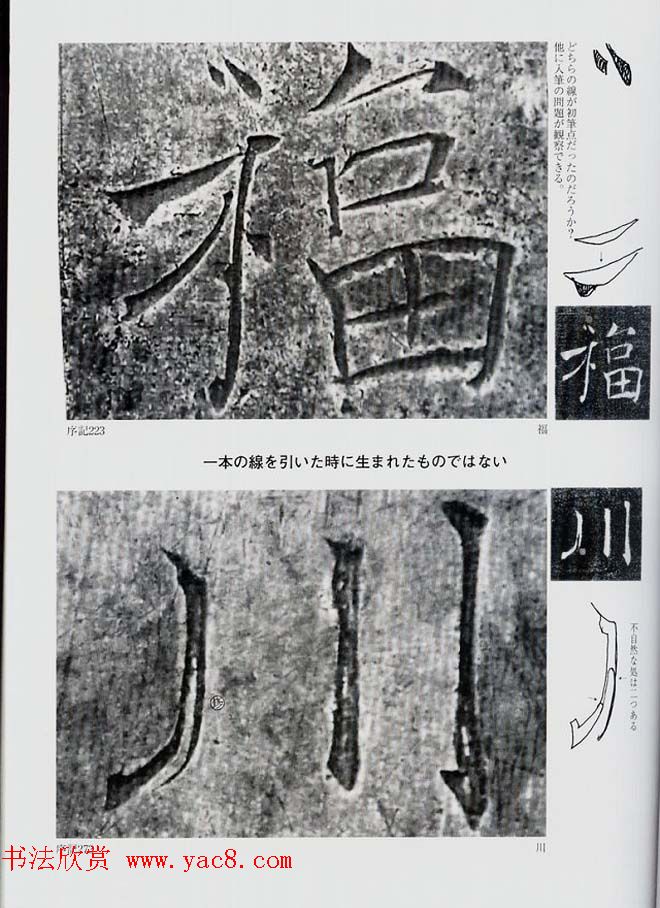 どちらの線が初筆点だったのだろうか?
他に入筆の問題が観察できる。
福
福
序記223
福
一本の線を引いた時に生まれたものではない
川
川
不自然な処は二つある
川
书法欣赏 www.yac8.com